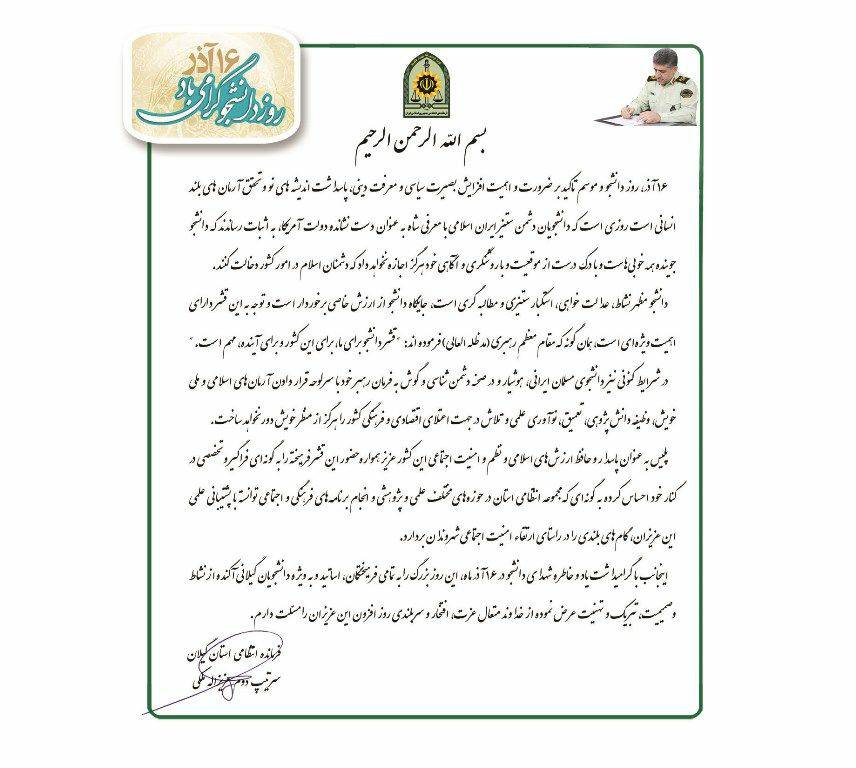 ۱۶ آذر
روز دانشجو گرامی باد
بسم الله الرحمن الرحیم
۱۶ آذر، روز دانشجو و موسم تاکید بر ضرورت و اهمیت افزایش بصیرت سیاسی و معرفت دینی، پاسداشت اندیشه های نو و تحقق آرمان های بلند
انسانی است روزی است که دانشجویان دشمن ستیز ایران اسلامی با معرفی شاه به عنوان دست نشانده دولت آمریکا، به اثبات رساندند که دانشجو
جوینده همه خوبی هاست و با درک درست از موقعیت و با روشنگری و آگاهی خود هرگز اجازه نخواهد داد که دشمنان اسلام در امور کشور دخالت کنند.
دانشجو مظهر نشاط، عدالت خواهی، استکبار ستیزی و مطالبه گری است، جایگاه دانشجو از ارزش خاصی برخوردار است و توجه به این قشر دارای
اهمیت ویژه ای است، همان گونه که مقام معظم رهبری (مد ظله العالی) فرموده اند: "قشر دانشجو برای ما، برای این کشور و برای آینده، مهم است."
در شرایط کنونی نیز دانشجوی مسلمان ایرانی، هوشیار و در صحنه دشمن شناسی و گوش به فرمان رهبر خود با سرلوحه قرار دادن آرمان های اسلامی و ملی
خویش، وظیفه دانش پژوهی، تعمیق، نوآوری علمی و تلاش در جهت اعتلای اقتصادی و فرهنگی کشور را هرگز از منظر خویش دور نخواهد ساخت.
پلیس به عنوان پاسدار و حافظ ارزش های اسلامی و نظم و امنیت اجتماعی این کشور عزیز همواره حضور این قشر فریخته را به گونه ای فراگیر و تخصصی در
کنار خود احساس کرده به گونه ای که مجموعه انتظامی استان در حوزه های مختلف علمی و پژوهشی و انجام برنامه های فرهنگی و اجتماعی توانسته با پشتیبانی علمی
این عزیزان، گام های بلندی را در راستای ارتقاء امنیت اجتماعی شهروندان بردارد.
اینجانب با گرامیداشت یاد و خاطره شهدای دانشجو در ۱۶ آذر ماه، این روز بزرگ را به تمامی فریختگان، اساتید و به ویژه دانشجویان گیلانی آکنده از نشاط
و صمیمیت، تبریک و تهنیت عرض نموده از خداوند متعال عزت، افتخار و سربلندی روز افزون این عزیزان را مسئلت دارم.
فرمانده انتظامی استان گیلان
سرتیپ دوم عزیزاله ملکی